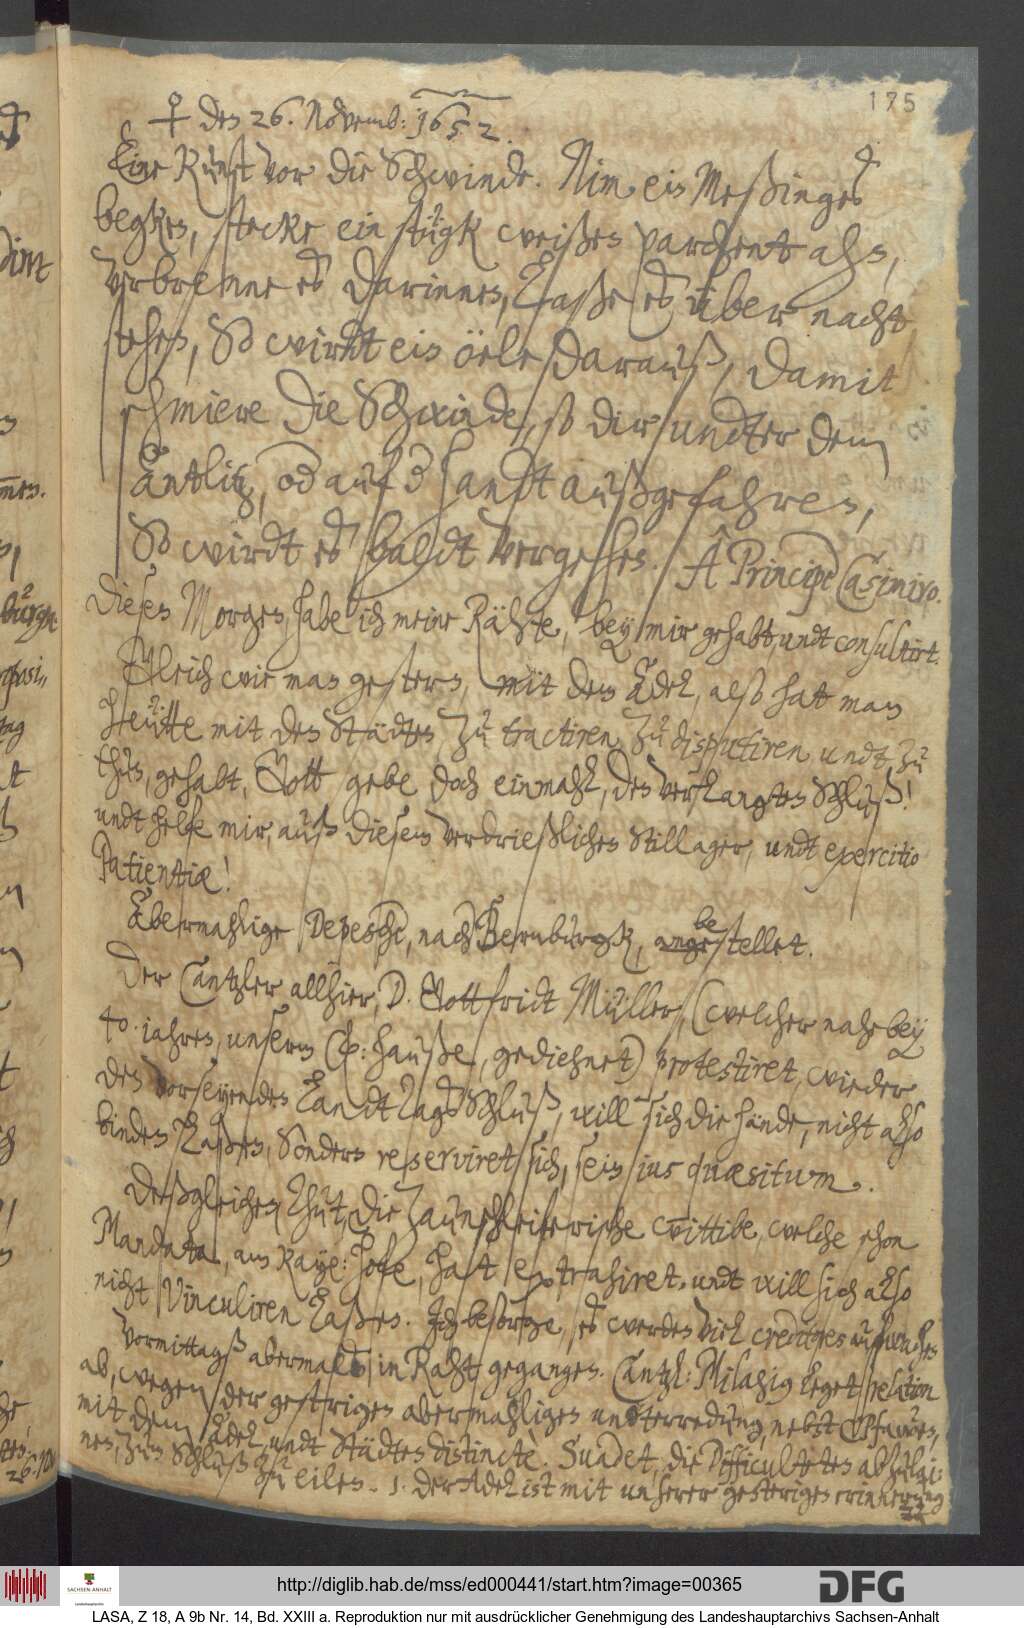 175
♀ den 26. Novemb: 1652.
Eine Kunst vor die Schwinde. Nim ein Meßinges
begken, stecke ein stügk weißen parchent ahn,
verbrenne es darinnen, Laße es über nacht
stehen, So wirdt ein öele darauß, damit
schmiere die Schwinde, so dir undter dem
Antlitz, od auf d handt außgefahren,
So wirdt es baldt vergehen. A Principe Casimiro.
Diesen Morgen habe ich meine Rähte, bey mir gehabt, undt consultirt.
Gleich wie man gestern, mit dem Adel, also hatt man
heütte mit den Städten, zu tractiren, zu disputiren undt zu
thun, gehabt, Gott gebe doch einmahl, den verlangten Schluß!
undt helfe mir, auß diesem verdrießlichen Stillager, undt exercitio
Patientiæ!
Abermahlige Depesche, nach Bernburgk, angestellet.
be
Der Cantzler allhier, D. Gottfridt Müller, (welcher nahe bey
40. iahren, unserm F: hause, gediehnet) protestiret, wieder
den vorseyenden Landtags Schluß, will sich die hände, nicht also
binden laßen, Sondern reserviret sich, sein ius quæsitum.
Deßgleichen thut, die Zaunschleiferische wittibe, welche schon
Mandata, am Kaye: hofe, hat extrahiret, undt will sich also
nicht Vinculiren laßen. Ich besorge, es werden viel creditores aufwachen
Vormittags abermals in Raht gegangen. Cantzl: Milagius leget relation
ab, wegen der gestrigen abermahligen undterredung, nebst
mit dem Adel, undt Städten distincte. Suadet, die Difficulteten abhülfi:
nen, zum Schluß zu eilen. 1. der Adel ist mit unserer gestrigen erinnerung
http://diglib.hab.de/mss/ed000441/start.htm?image=00365
SACHSEN-ANHALT
Landeshauptarchiv
DFG
LASA, Z 18, A 9b Nr. 14, Bd. XXIII a. Reproduktion nur mit ausdrücklicher Genehmigung des Landeshauptarchivs Sachsen-Anhalt